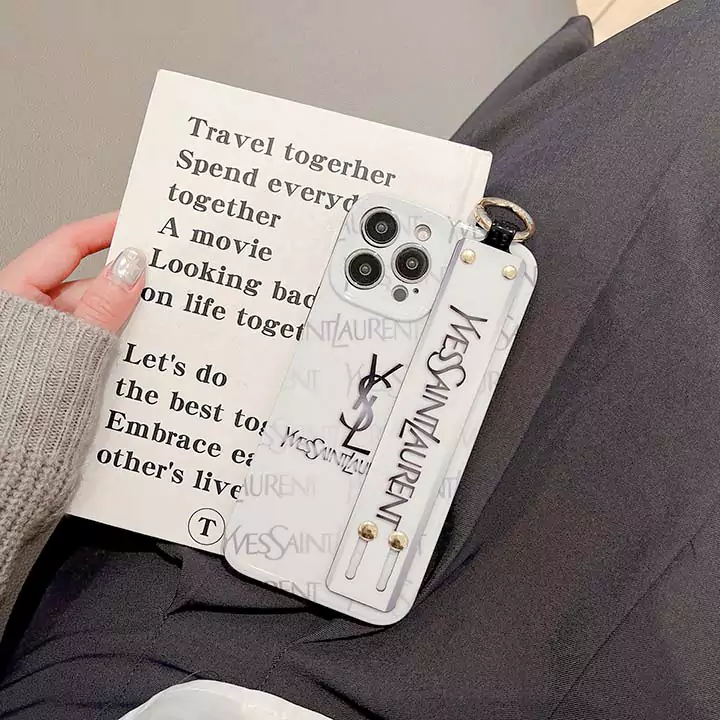 Travel togerher
Spend everyd
together
A movie
Looking bac
on life toget
Let's do
the best tog
Embrace ea
other's live
T
YSL
YVESSAINTLAU
YVESSAINTLAURENT
NTLAURENT
AURENT
YVESSAINT